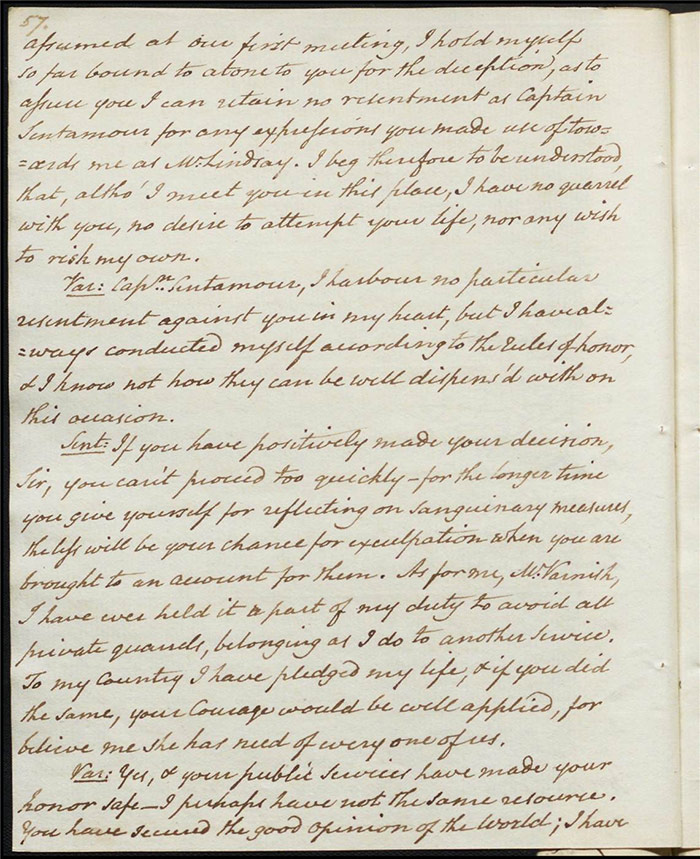 57.
assumed at our first meeting, I hold myself
so far bound to atone to you for the deception, as to
assure you I can retain no resentment as Captain
Sentamour for any expressions you made use of tow=
=ards me as Mr. Lindsay. I beg therefore to be understood,
that, altho' I meet you in this place, I have no quarrel
with you, no desire to attempt your life, nor any wish
to risk my own.
Var: Capn. Sentamour, I harbour no particular
resentment against you in my heart, but I have al=
=ways conducted myself according to the Rules of honor,
& I know not how they can be well dispens'd with on
this occasion.
Sent: If you have positively made your decision,
Sir, you can't proceed too quickly – for the longer time
you give yourself for reflecting on sanguinary measures,
the less will be your chance for exculpation when you are
brought to an account for them. As for me, Mr. Varnish,
I have ever held it a part of my duty to avoid all
private quarrels, belonging as I do to another Service.
To my Country I have pledged my life, & if you did
the same, your Courage would be well applied, for
believe me she has need of every one of us.
Var: Yes, & your public Services have made your
honor safe – I perhaps have not the same resource.
You have secured the good opinion of the World; I have